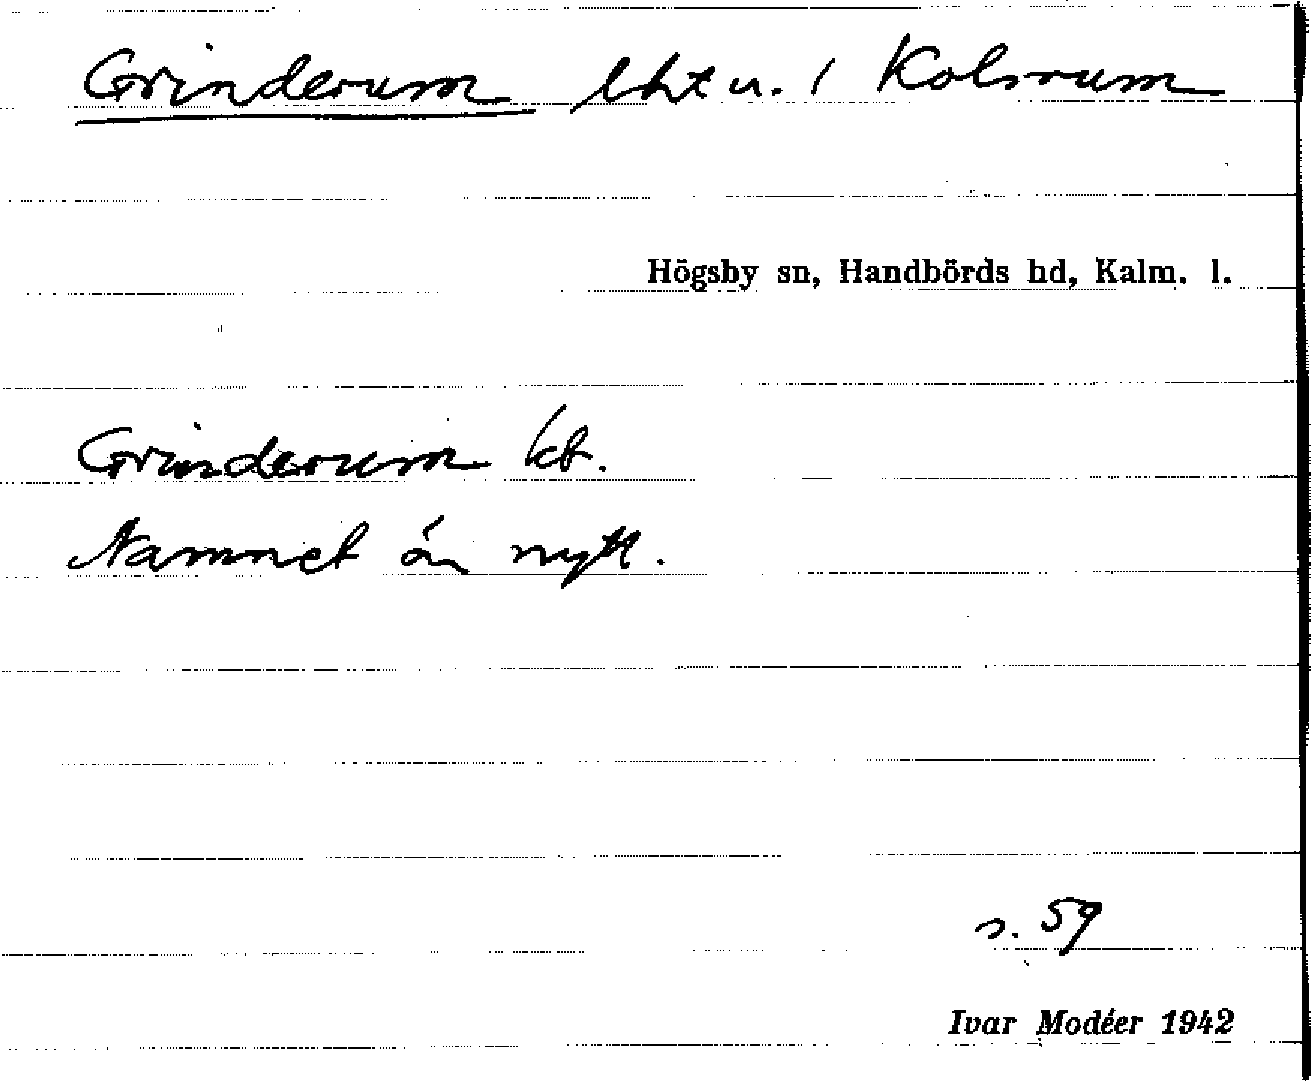 Grinderum lht u. / Kolsrum
Högsby sn, Handbörds hd, Kalm. l.
Grinderum kt.
Namnet än nytt.
s. 59
Ivar Modéer 1942